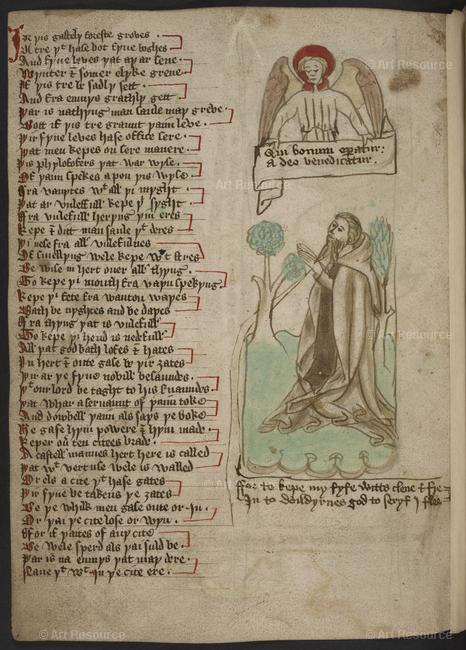 In þis gastly foreste groves
A tre þt hase dot fyve boghes
And fyve leves þat ay ar sene
Wynter & somer elyke grene
If þis tre be sadly sett
And fra enmys grathly gett
Þar is nathyng man sarde may greve
Bott if þis tre graunt þaim leve
Þir fyve leves hase offte sere
Þat men kepes on sere manere
Þis philosofers þat war wyse
Of þaim spekes apon þis wyse
Fra vanytes wt all þi myght
Þat ar vnlefull kepe þi syght
Fra vnlefull heryng þin eres
Kepe & ditt man saule þt deres
Þi nese fra all vnlefulnes
Of smellyng wele kepe wt stres
Be wise in hert ouer all thyng
To kepe þi mouth fra vayn spekyng
Kepe þi fete fra wanton wayes
Bath be nyghtes and be dayes
Fra thyng þat is vnlefull
To kepe þi hend is nedefull
All þat god bath lofes & hates
In hert & oute gase be þir ȝates
Þir ar þe fyve nobill besauntes
Þt our lord be taght to his seruauntes
Þat whar a seruaunt of þaim toke
And dowbyll þaim als says þe boke
He gafe hym powere & hym made
Keper ouer ten citees brade
A castell mannes hert here is called
Þat wt vertuse wele is walled
Or els a cite þt hase ȝates
Þir fyve be takens þe ȝates
Be þe whilk men gase oute or in
Or þai þe cite lose or wyn
For if ȝates of any cite
Be wele sperd als þai suld be
Þar is na enmys þat may dere
Þt wt in þe cite ere
Qui bonum operatur:
a deo benedicatur.
For to kepe my fyfe witts clene & fre
In to
god to serfe
© Art Resource